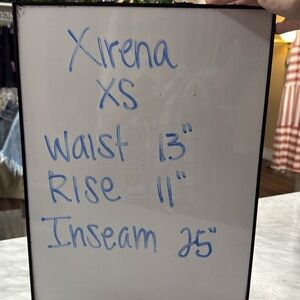 Xirena
XS
Waist 13"
Rise 11"
Inseam 25"